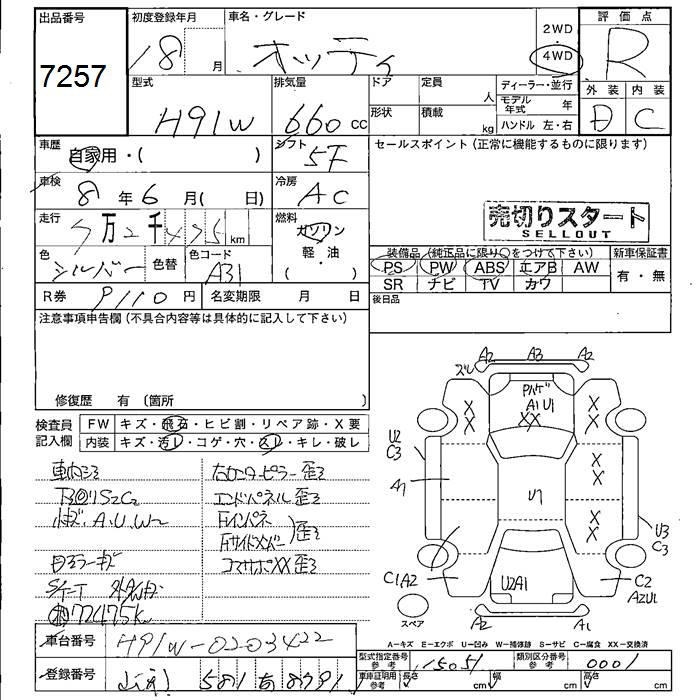 出品番号 初度登録年月 車名・グレード 2WD 評価点
7257 18 月 オッティ 4WD R
型式 排気量 ドア 定員 人 ディーラー・並行 外装 内装
H91W 660 cc 形状 積載 kg モデル年式 年 D C
ハンドル 左・右
車歴 自家用・( ) シフト 5F セールスポイント(正常に機能するものに限ります)
車検 8 年 6 月( 日) 冷房 AC
売切りスタート
SELLOUT
走行 7万2千475 km 燃料 ガソリン・軽油・( )
色 シルバー 色替 色コード A31
装備品(純正品に限り○をつけて下さい) 新車保証書
PS PW ABS エアB AW 有・無
SR ナビ TV カワ
R券 9110 円 名変期限 月 日 後日品
注意事項申告欄(不具合内容等は具体的に記入して下さい)
修復歴 有 (箇所
検査員記入欄 FW キズ・飛石・ヒビ割・リペア跡・X要
内装 キズ・汚レ・コゲ・穴・スレ・キレ・破レ
エンドパネル歪ミ
コマサポXX歪ミ
72475k
車台番号 H91W-0203422
登録番号 581 8791
ズレ A2 A3 A2
A1 U1
XX
X X
X X
U2
C3
A1
U1
X X
X X
U3
C3
C1A2
U2A1
C2
A2U1
スペア
A2 A1
A-キズ E-エクボ U-凹み W-補修跡 S-サビ C-腐食 XX-交換済
型式指定番号 参考 15051 類別区分番号 参考 0001
車庫証明用 参考 長さ cm 幅 cm 高さ cm